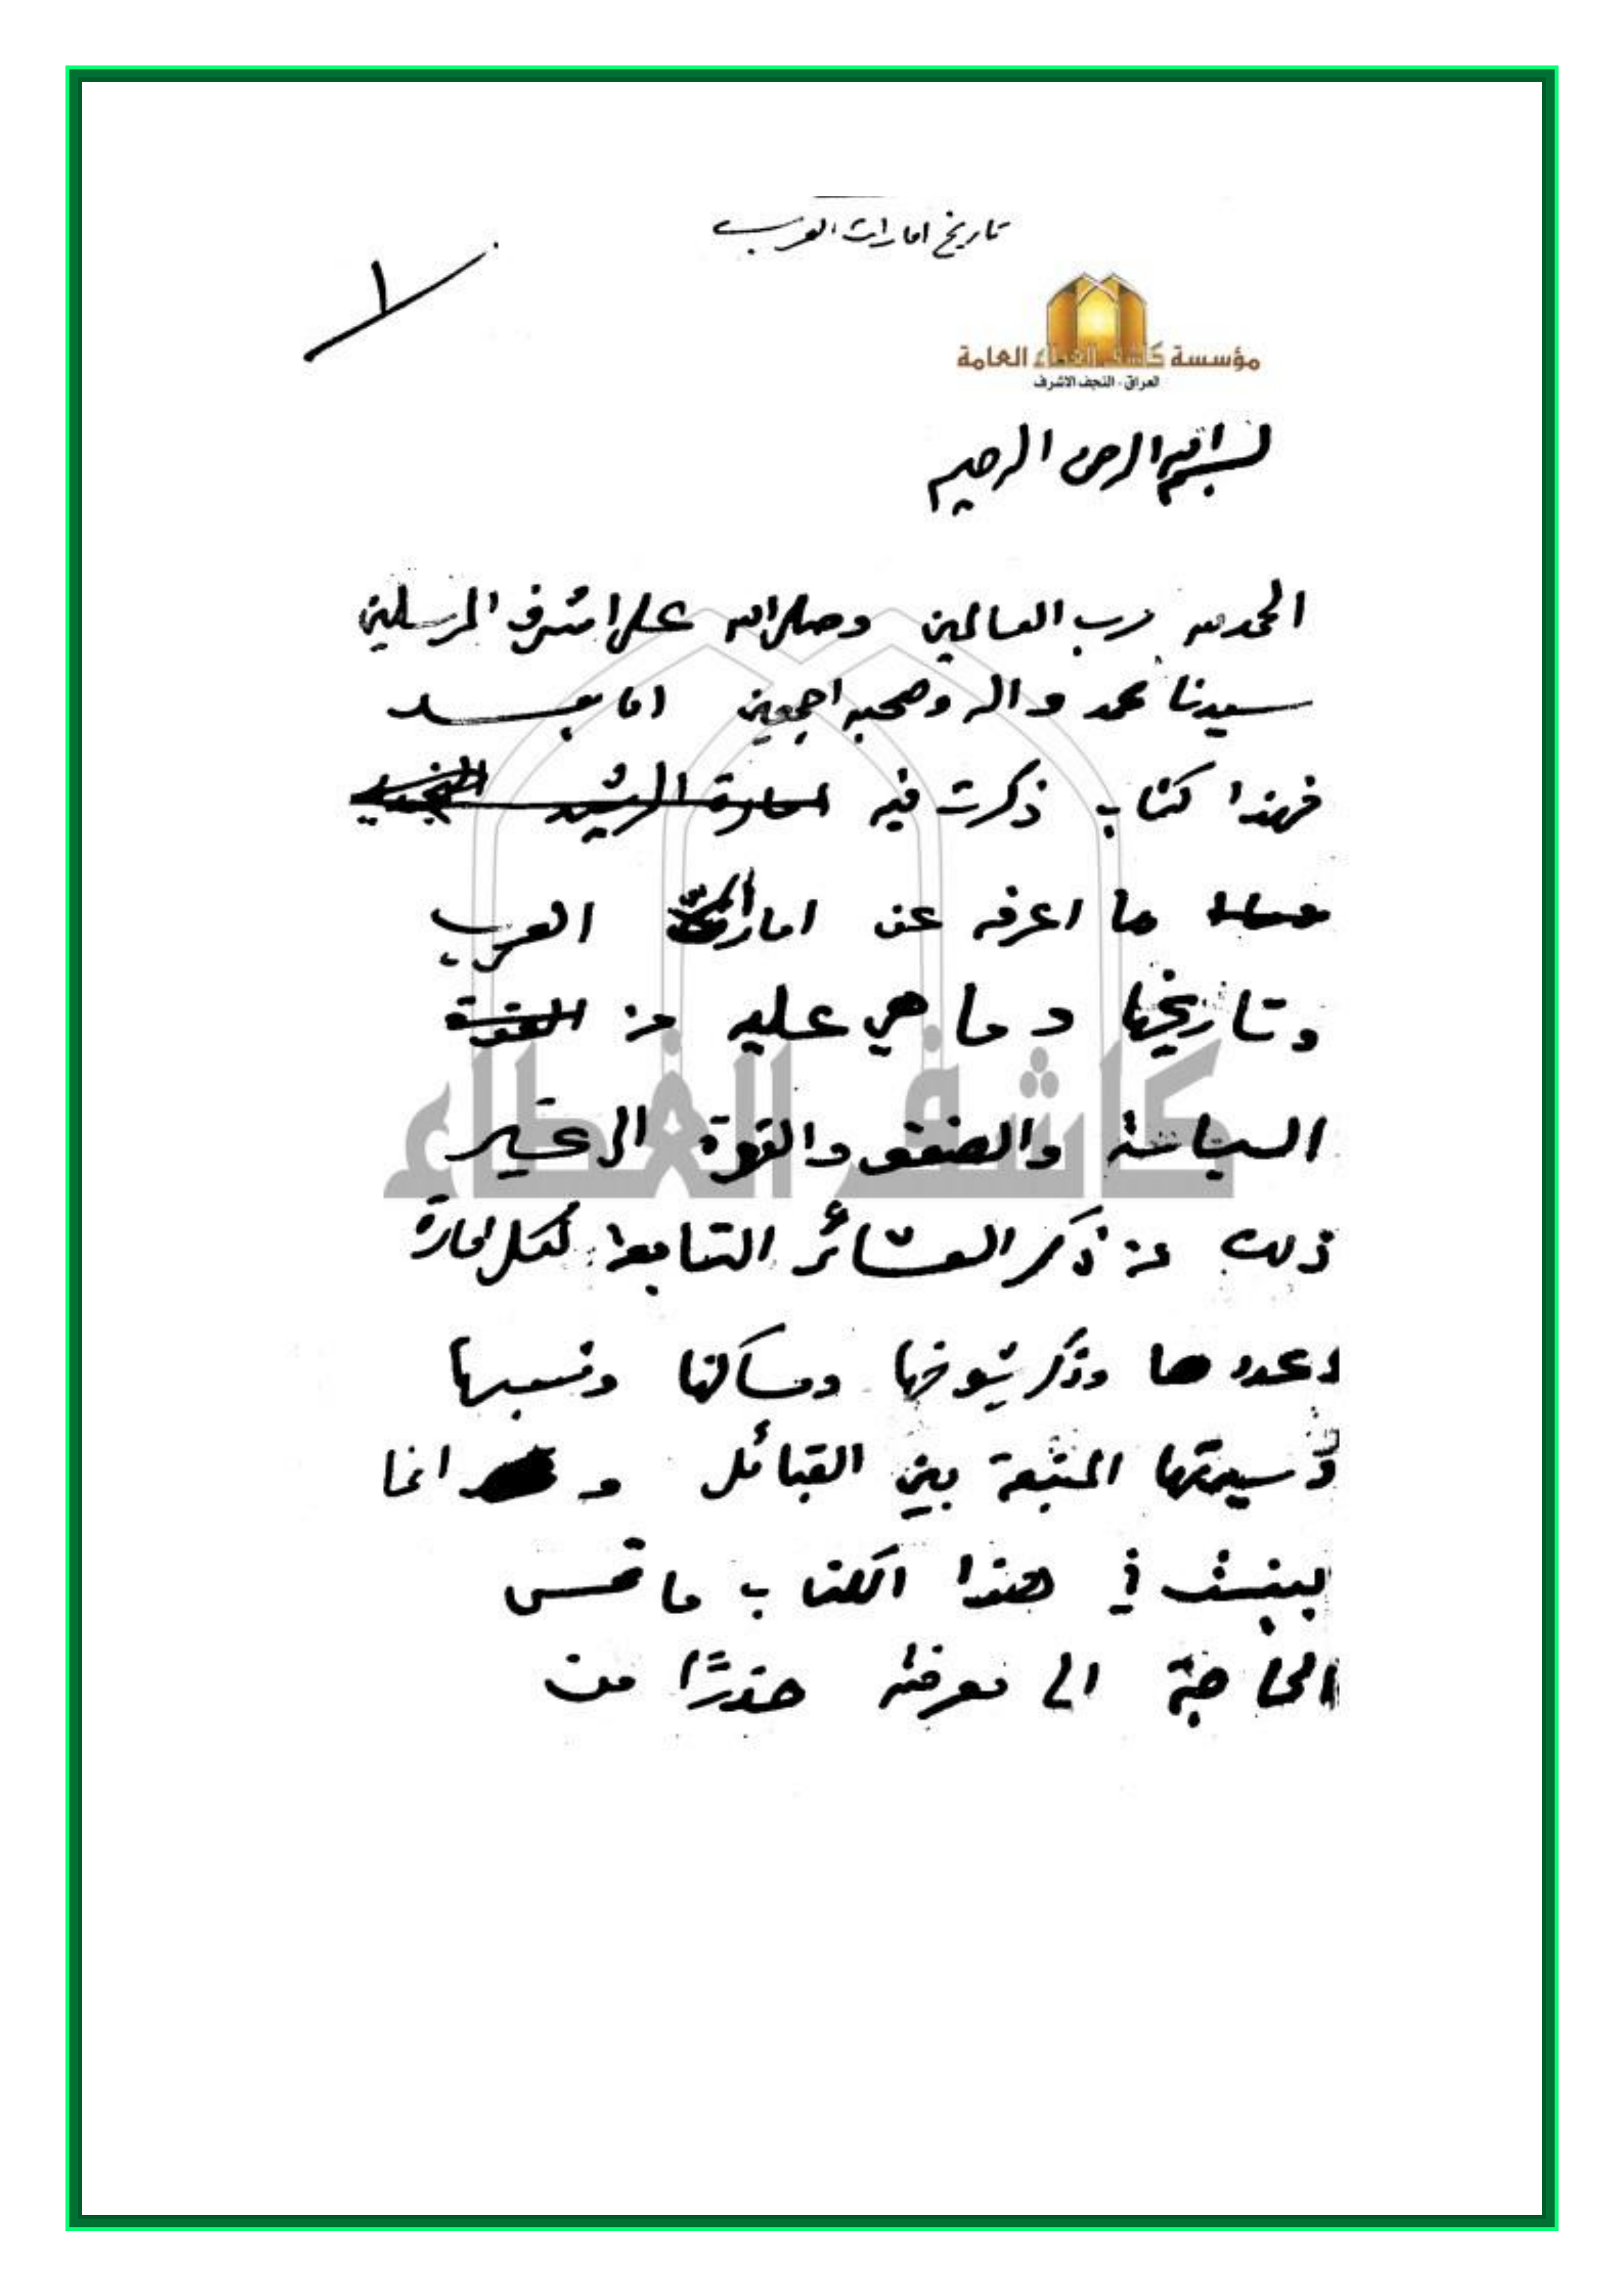 تاريخ امارات العرب
١
مؤسسة كاشف الغطاء العامة
العراق - النجف الاشرف
بسم الله الرحمن الرحيم
الحمد لله رب العالمين وصلى الله على اشرف المرسلين
سيدنا محمد واله وصحبه اجمعين اما بعد
فهذا كتاب ذكرت فيه امارة الرشيد
ما اعرفه عن امارات العرب
وتاريخها وما هي عليه من القوة
السياسة والضعف والقوة الى غير
ذلك من ذكر العشائر التابعة لكل امارة
وعددها وذكر شيوخها ومساكنها ونسبها
وسيرتها المتبعة بين القبائل و انما
في هذا الكتاب ما تمس
الحاجة الى معرفته حذرًا من
كاشف الغطاء